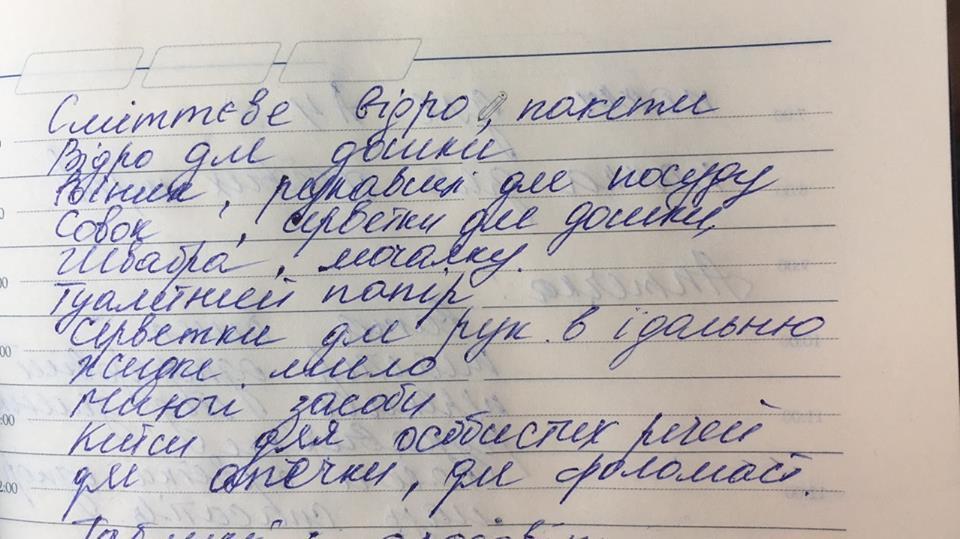 Сміттєве відро, пакети
Відро для дошки
Віник, рукавиці для посуду
Совок, серветки для дошки,
Швабра, мочалку
Туалетний папір
Серветки для рук в їдальню
Жидке мило
Миючі засоби
Кейси для особистих речей
для аптечки, для фломаст.
7:00
9:00
10:00
11:00
12:00